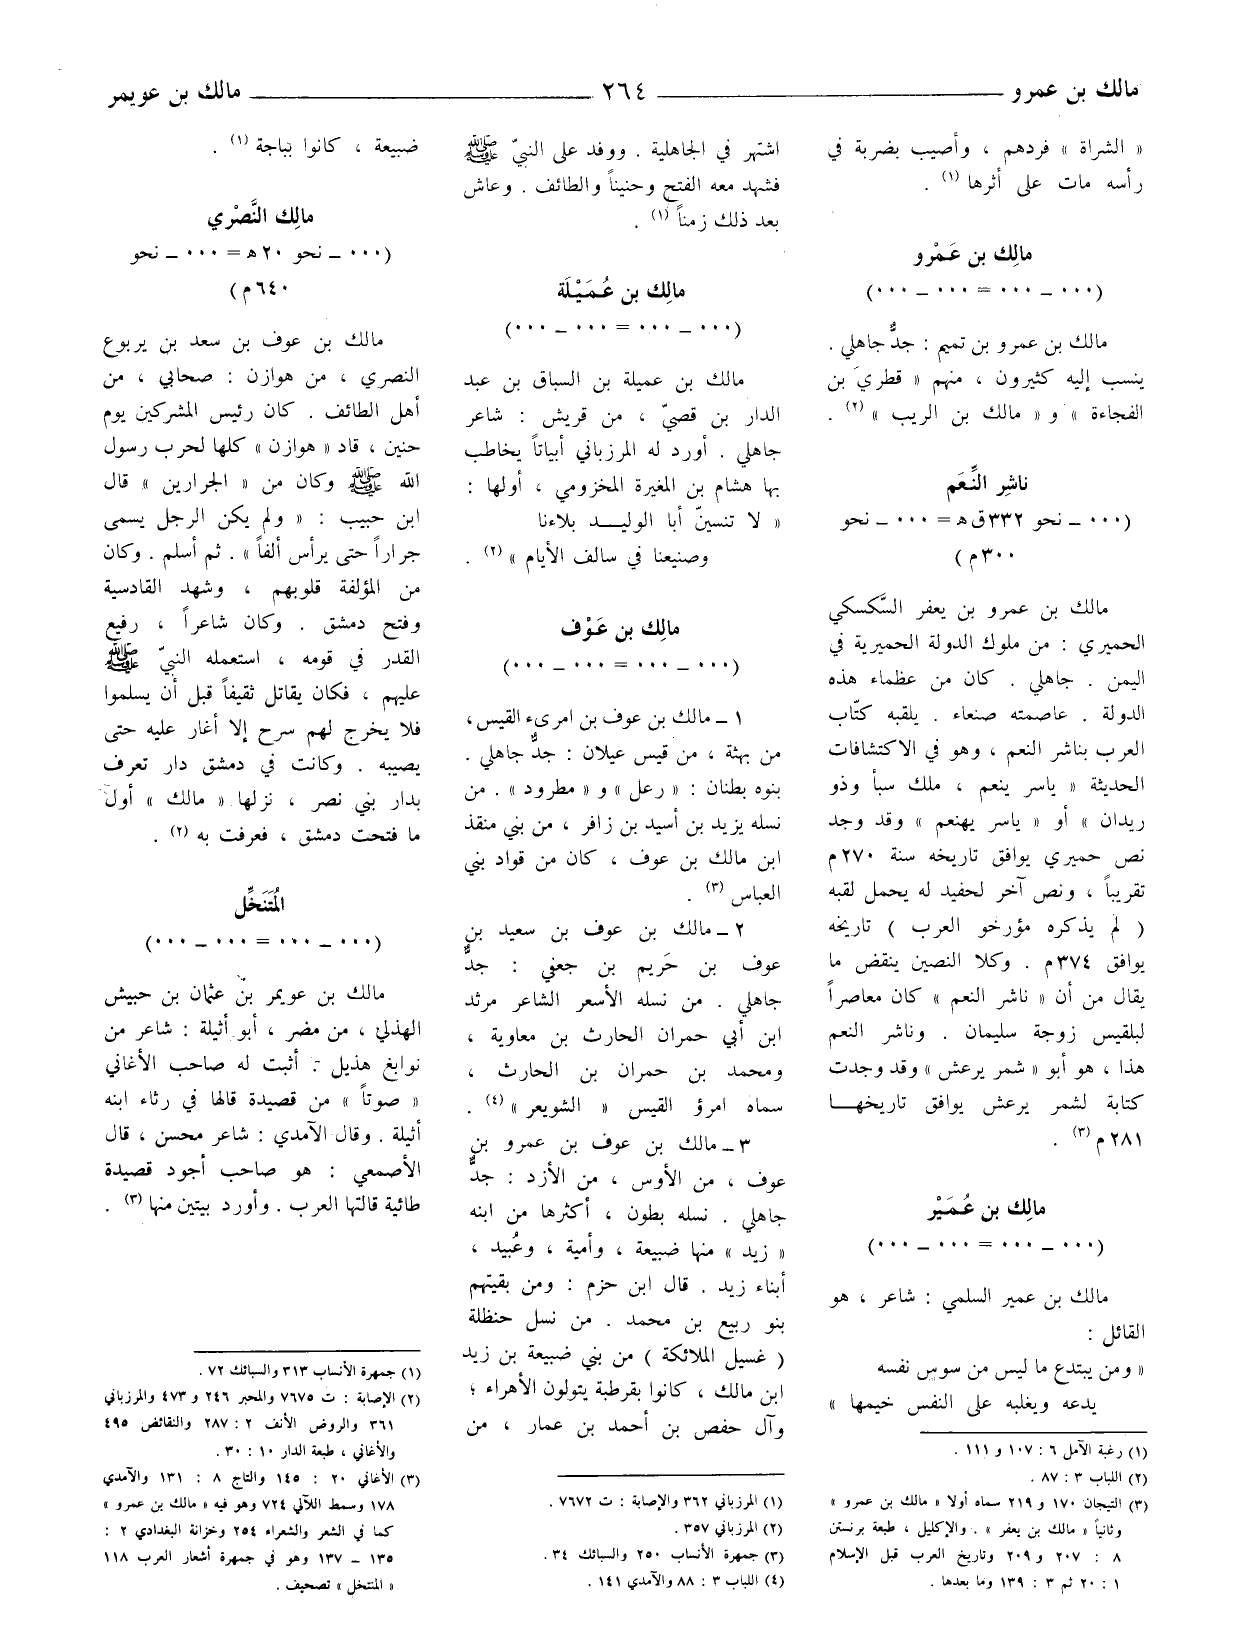 مالك بن عمرو ــــــ ٢٦٤ ــــــ مالك بن عويمر
« الشراة » فردهم ، وأصيب بضربة في
رأسه مات على أثرها (١) .
مالِك بن عَمْرو
(٠٠٠ ــ ٠٠٠ = ٠٠٠ ــ ٠٠٠)
مالك بن عمرو بن تميم : جدٌّ جاهلي .
ينسب إليه كثيرون ، منهم « قطريّ بن
الفجاءة » و « مالك بن الريب » (٢) .
ناشِر النِّعَم
(٠٠٠ ــ نحو ٣٣٢ق ه = ٠٠٠ ــ نحو
٣٠٠م)
مالك بن عمرو بن يعفر السَّكسكي
الحميري : من ملوك الدولة الحميرية في
اليمن . جاهلي . كان من عظماء هذه
الدولة . عاصمته صنعاء . يلقبه كتّاب
العرب بناشر النعم ، وهو في الاكتشافات
الحديثة « ياسر ينعم ، ملك سبأ وذو
ريدان » أو « ياسر يهنعم » وقد وجد
نص حميري يوافق تاريخه سنة ٢٧٠م
تقريباً ، ونص آخر لحفيد له يحمل لقبه
( لم يذكره مؤرخو العرب ) تاريخه
يوافق ٣٧٤م . وكلا النصين ينقض ما
يقال من أن « ناشر النعم » كان معاصراً
لبلقيس زوجة سليمان . وناشر النعم
هذا ، هو أبو « شمر يرعش » وقد وجدت
كتابة لشمر يرعش يوافق تاريخهــا
٢٨١م (٣) .
مالِك بن عُمَيْر
(٠٠٠ ــ ٠٠٠ = ٠٠٠ ــ ٠٠٠)
مالك بن عمير السلمي : شاعر ، هو
القائل :
« ومن يبتدع ما ليس من سوس نفسه
يدعه ويغلبه على النفس خيمها »
(١) رغبة الآمل ٦ : ١٠٧ و ١١١ .
(٢) اللباب ٣ : ٨٧ .
(٣) التيجان ١٧٠ و ٢١٩ سماه أولا « مالك بن عمرو »
وثانياً « مالك بن يعفر » . والإكليل ، طبعة برنستن
٨ : ٢٠٧ و ٢٠٩ وتاريخ العرب قبل الإسلام
١ : ٢٠ ثم ٣ : ١٣٩ وما بعدها .
اشتهر في الجاهلية . ووفد على النبيّ ﷺ
فشهد معه الفتح وحنيناً والطائف . وعاش
بعد ذلك زمناً (١) .
مالِك بن عُمَيْلَة
(٠٠٠ ــ ٠٠٠ = ٠٠٠ ــ ٠٠٠)
مالك بن عميلة بن السباق بن عبد
الدار بن قصيّ ، من قريش : شاعر
جاهلي . أورد له المرزباني أبياتاً يخاطب
بها هشام بن المغيرة المخزومي ، أولها :
« لا تنسينّ أبا الوليــد بلاءنا
وصنيعنا في سالف الأيام » (٢) .
مالِك بن عَوْف
(٠٠٠ ــ ٠٠٠ = ٠٠٠ ــ ٠٠٠)
١ ــ مالك بن عوف بن امرىء القيس ،
من بهثة ، من قيس عيلان : جدٌّ جاهلي .
بنوه بطنان : « رعل » و « مطرود » . من
نسله يزيد بن أسيد بن زافر ، من بني منقذ
ابن مالك بن عوف ، كان من قواد بني
العباس (٣) .
٢ ــ مالك بن عوف بن سعيد بن
عوف بن حَريم بن جعفي : جدٌّ
جاهلي . من نسله الأسعر الشاعر مرثد
ابن أبي حمران الحارث بن معاوية ،
ومحمد بن حمران بن الحارث ،
سماه امرؤ القيس « الشويعر » (٤) .
٣ ــ مالك بن عوف بن عمرو بن
عوف ، من الأوس ، من الأزد : جدٌّ
جاهلي . نسله بطون ، أكثرها من ابنه
« زيد » منها ضبيعة ، وأمية ، وعُبيد ،
أبناء زيد . قال ابن حزم : ومن بقيتهم
بنو ربيع بن محمد . من نسل حنظلة
( غسيل الملائكة ) من بني ضبيعة بن زيد
ابن مالك ، كانوا بقرطبة يتولون الأهراء ؛
وآل حفص بن أحمد بن عمار ، من
(١) المرزباني ٣٦٢ والإصابة : ت ٧٦٧٢ .
(٢) المرزباني ٣٥٧ .
(٣) جمهرة الأنساب ٢٥٠ والسبائك ٣٤ .
(٤) اللباب ٣ : ٨٨ والآمدي ١٤١ .
ضبيعة ، كانوا بباجة (١) .
مالِك النَّصْري
(٠٠٠ ــ نحو ٢٠ ه = ٠٠٠ ــ نحو
٦٤٠م)
مالك بن عوف بن سعد بن يربوع
النصري ، من هوازن : صحابي ، من
أهل الطائف . كان رئيس المشركين يوم
حنين ، قاد « هوازن » كلها لحرب رسول
الله ﷺ وكان من « الجرارين » قال
ابن حبيب : « ولم يكن الرجل يسمى
جراراً حتى يرأس ألفاً » . ثم أسلم . وكان
من المؤلفة قلوبهم ، وشهد القادسية
وفتح دمشق . وكان شاعراً ، رفيع
القدر في قومه ، استعمله النبيّ ﷺ
عليهم ، فكان يقاتل ثقيفاً قبل أن يسلموا
فلا يخرج لهم سرح إلا أغار عليه حتى
يصيبه . وكانت في دمشق دار تعرف
بدار بني نصر ، نزلها « مالك » أول
ما فتحت دمشق ، فعرفت به (٢) .
المُتَنَخِّل
(٠٠٠ ــ ٠٠٠ = ٠٠٠ ــ ٠٠٠)
مالك بن عويمر بن عثمان بن حبيش
الهذلي ، من مضر ، أبو أثيلة : شاعر من
نوابغ هذيل : أثبت له صاحب الأغاني
« صوتاً » من قصيدة قالها في رثاء ابنه
أثيلة . وقال الآمدي : شاعر محسن ، قال
الأصمعي : هو صاحب أجود قصيدة
طائية قالتها العرب . وأورد بيتين منها (٣) .
(١) جمهرة الأنساب ٣١٣ والسبائك ٧٢ .
(٢) الإصابة : ت ٧٦٧٥ والمحبر ٢٤٦ و ٤٧٣ والمرزباني
٣٦١ والروض الأنف ٢ : ٢٨٧ والنقائض ٤٩٥
والأغاني ، طبعة الدار ١٠ : ٣٠ .
(٣) الأغاني ٢٠ : ١٤٥ والتاج ٨ : ١٣١ والآمدي
١٧٨ وسمط اللآلي ٧٢٤ وهو فيه « مالك بن عمرو »
كما في الشعر والشعراء ٢٥٤ وخزانة البغدادي ٢ :
١٣٥ ــ ١٣٧ وهو في جمهرة أشعار العرب ١١٨
« المنتخل » تصحيف .